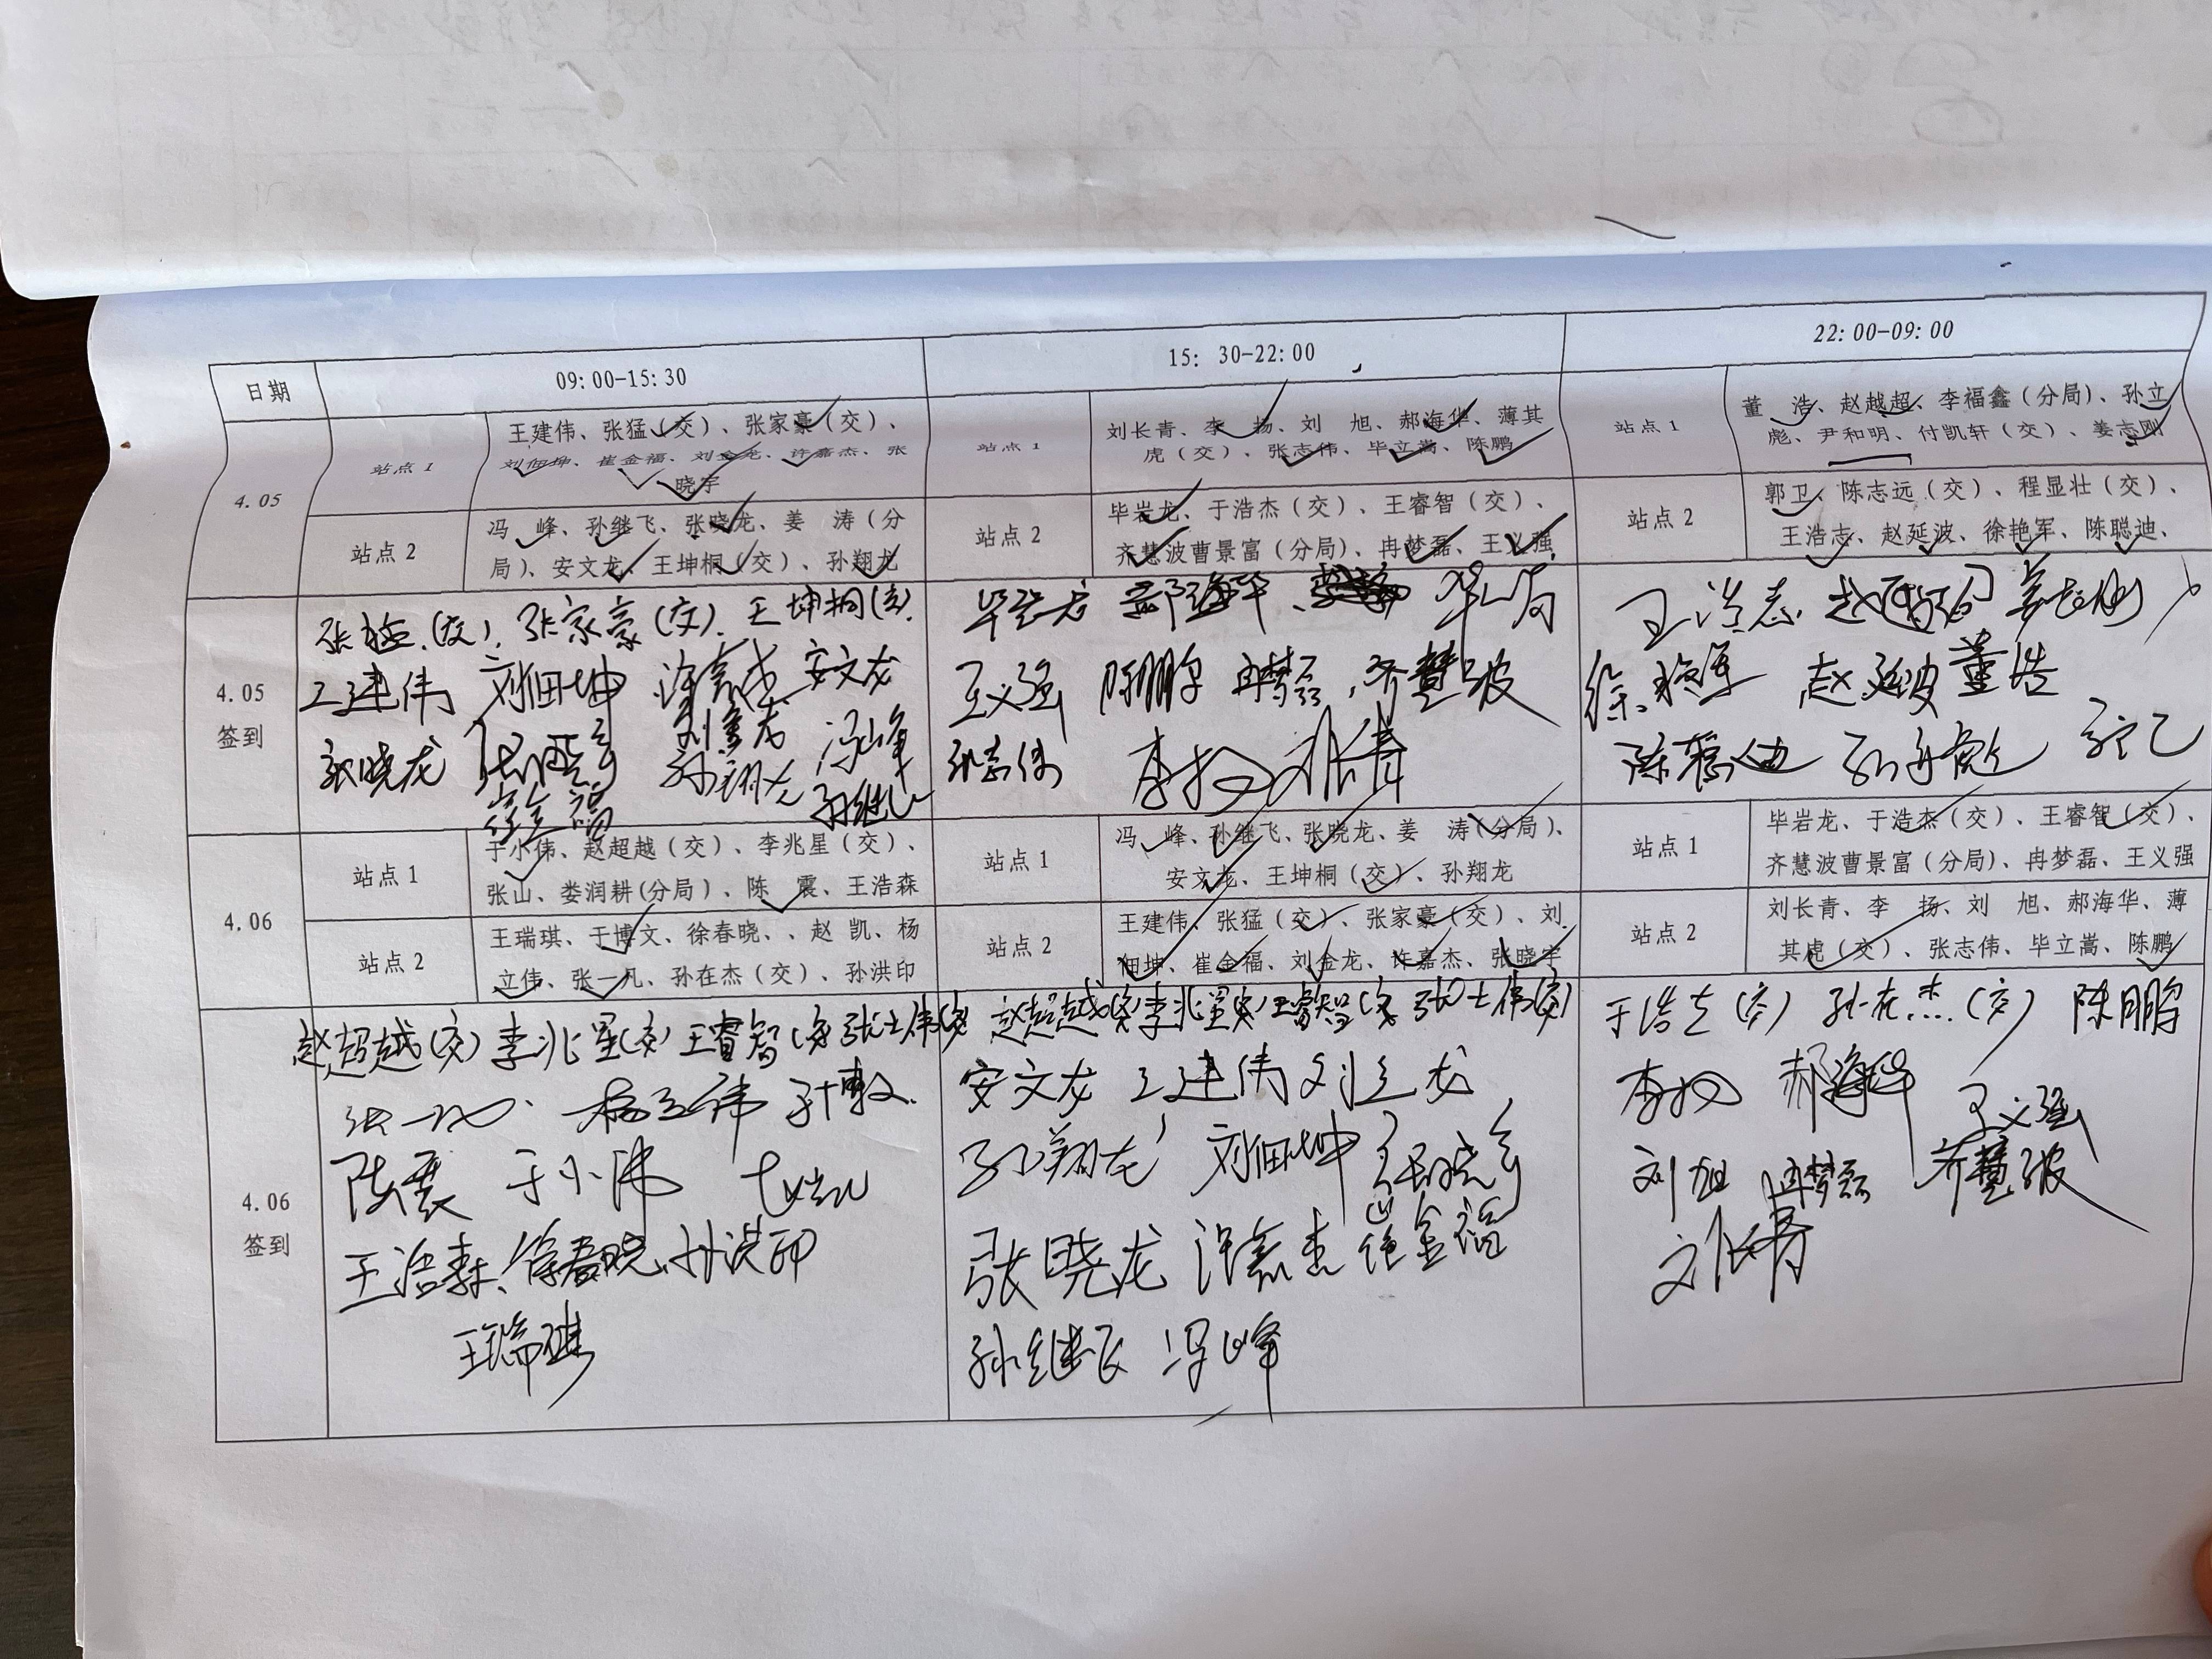 日期
09:00-15:30
15:30-22:00
22:00-09:00
4.05
站点1
王建伟、张猛(交)、张家豪(交)、
刘佃坤、崔金福、刘金龙、许嘉杰、张
晓宇
站点1
刘长青、李 扬、刘 旭、郝海华、薄其
虎(交)、张志伟、毕立嵩、陈鹏
站点1
董 浩、赵越超、李福鑫(分局)、孙立
彪、尹和明、付凯轩(交)、姜志刚
站点2
冯 峰、孙继飞、张晓龙、姜 涛(分
局)、安文龙、王坤桐(交)、孙翔龙
站点2
毕岩龙、于浩杰(交)、王睿智(交)、
齐慧波曹景富(分局)、冉梦磊、王义强
站点2
郭卫、陈志远(交)、程显壮(交)、
王浩志、赵延波、徐艳军、陈聪迪、
4.05
签到
张猛(交). 张家豪(交). 王坤桐(交).
王建伟 刘佃坤 许嘉杰 安文龙
张晓龙 张晓宇 刘金龙 冯峰
崔金福 孙翔龙 孙继飞
毕岩龙 郝海华 毕立嵩
王义强 陈鹏 冉梦磊 齐慧波
张志伟 李扬 刘长青
王浩志 赵越超 姜志刚
徐艳军 赵延波 董浩
陈聪迪 孙立彪
4.06
站点1
于小伟、赵超越(交)、李兆星(交)、
张山、娄润耕(分局)、陈 震、王浩森
站点1
冯 峰、孙继飞、张晓龙、姜 涛(分局)、
安文龙、王坤桐(交)、孙翔龙
站点1
毕岩龙、于浩杰(交)、王睿智(交)、
齐慧波曹景富(分局)、冉梦磊、王义强
站点2
王瑞琪、于博文、徐春晓、、赵 凯、杨
立伟、张一凡、孙在杰(交)、孙洪印
站点2
王建伟、张猛(交)、张家豪(交)、刘
佃坤、崔金福、刘金龙、许嘉杰、张晓宇
站点2
刘长青、李 扬、刘 旭、郝海华、薄
其虎(交)、张志伟、毕立嵩、陈鹏
4.06
签到
赵超越(交) 李兆星(交) 王睿智(交) 张士伟(交)
张一凡 杨立伟 于博文
陈震 于小伟
王浩森、徐春晓、孙洪印
王瑞琪
赵超越(交) 李兆星(交) 王睿智(交) 张士伟(交)
安文龙 王建伟 刘金龙
孙翔龙 刘佃坤 张晓宇
张晓龙 许嘉杰 崔金福
孙继飞 冯峰
于浩杰(交) 孙在杰(交) 陈鹏
李扬 郝海华 王义强
刘旭 冉梦磊 齐慧波
刘长青